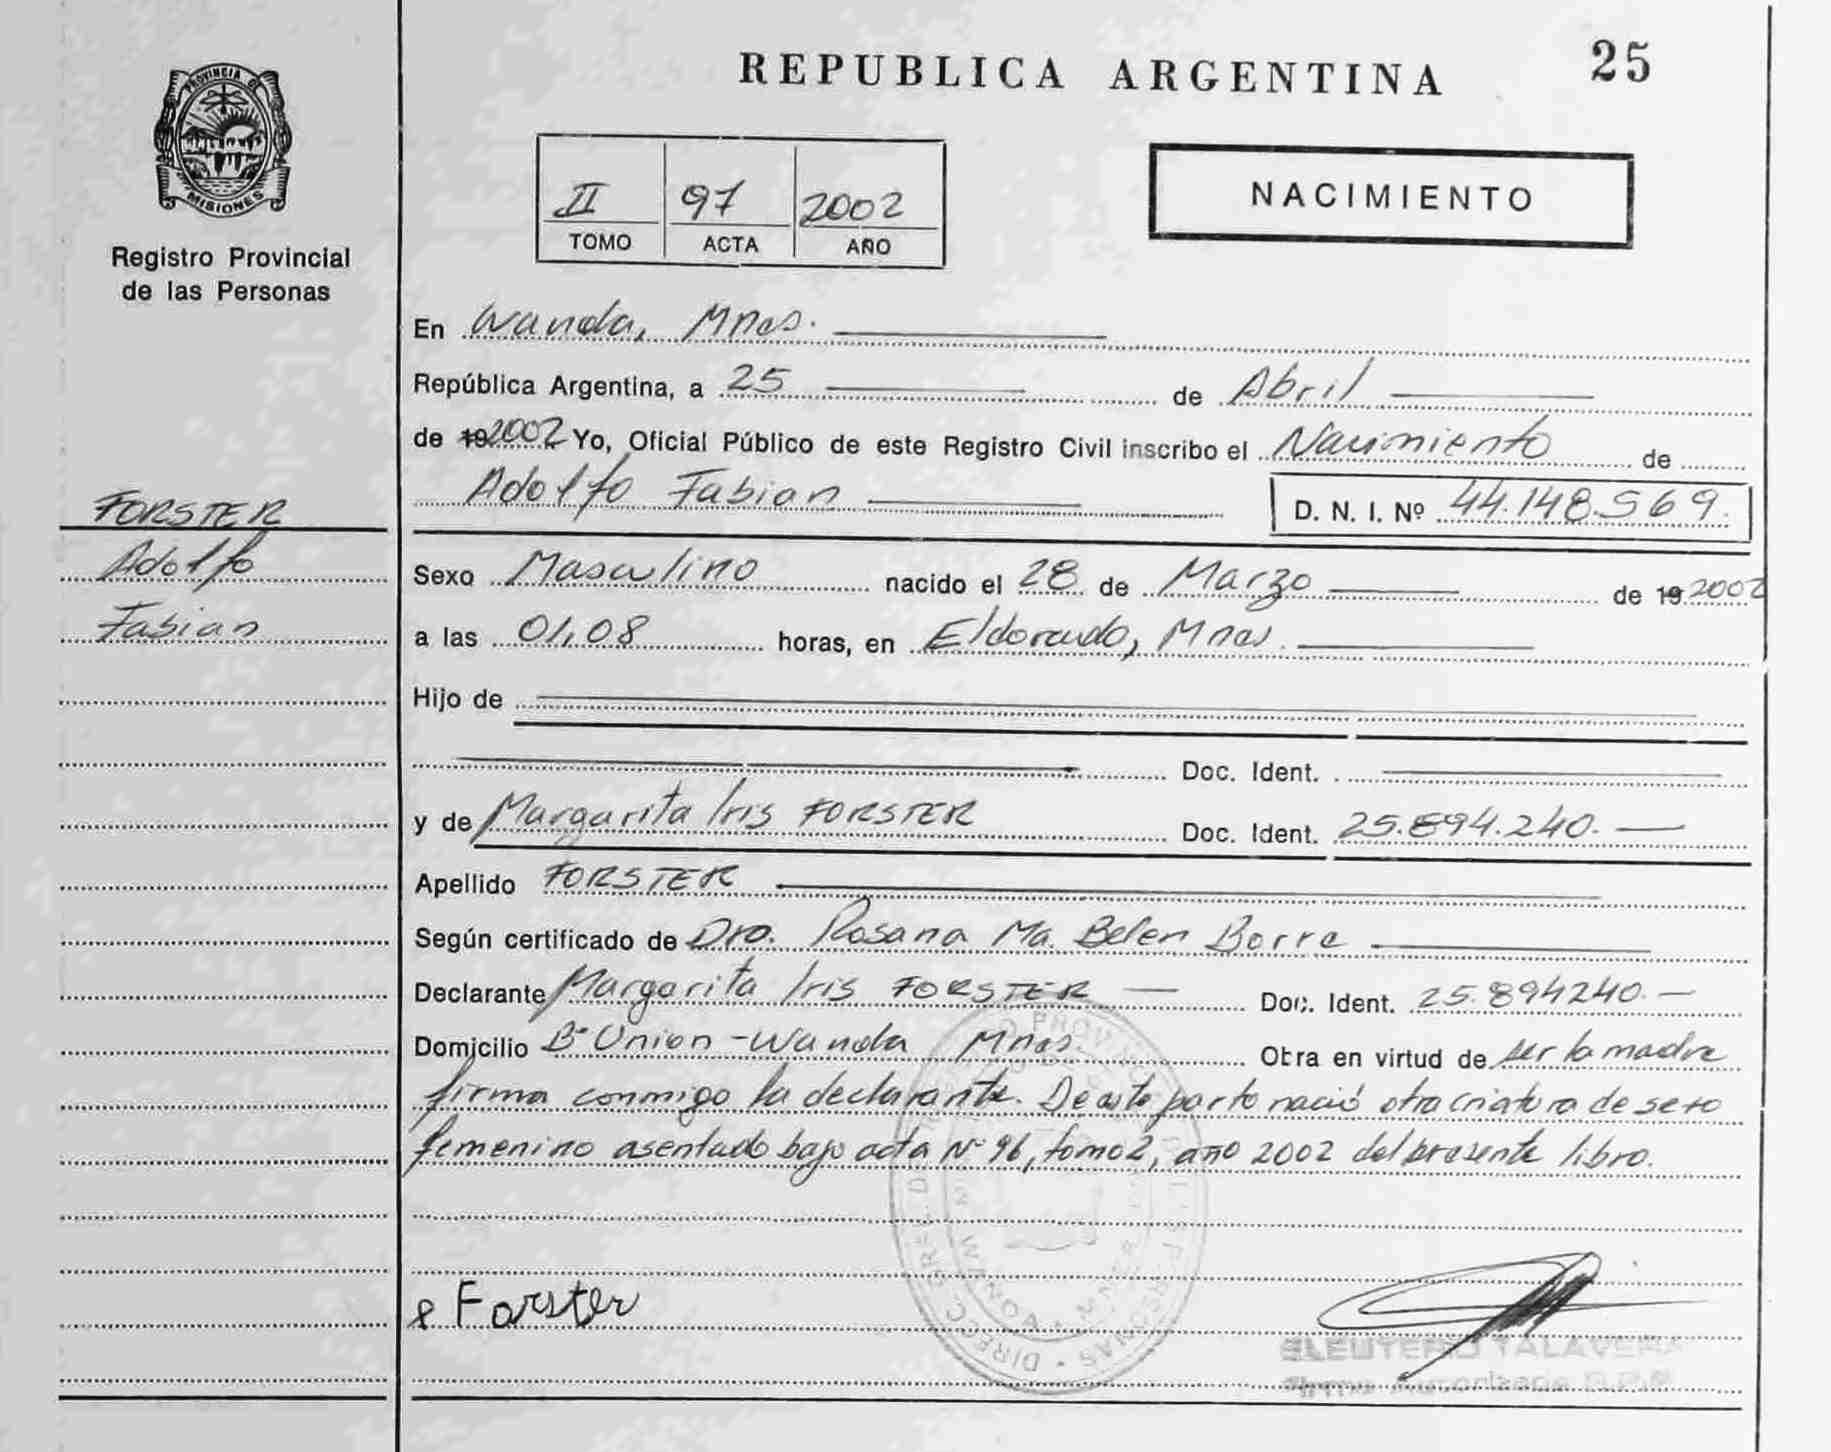 REPUBLICA ARGENTINA
25
PROVINCIA DE
MISIONES
Registro Provincial
de las Personas
II 97 2002
TOMO ACTA AÑO
NACIMIENTO
En Wanda, Mnes.
República Argentina, a 25 de Abril
de 19 2002 Yo, Oficial Público de este Registro Civil inscribo el Nacimiento de
Adolfo Fabian D. N. I. Nº 44.148.569.
FORSTER
Adolfo
Fabian
Sexo Masculino nacido el 28 de Marzo de 19 2002
a las 01,08 horas, en Eldorado, Mnes.
Hijo de
Doc. Ident.
y de Margarita Iris FORSTER Doc. Ident. 25.894.240.
Apellido FORSTER
Según certificado de Dra. Rosana Ma. Belen Borre
Declarante Margarita Iris FORSTER Doc. Ident. 25.894240.
Domicilio Bº Union - Wanda Mnes. Obra en virtud de ser la madre
firma conmigo la declarante. De este parto nació otra criatura de sexo
femenino asentado bajo acta Nº 96, tomo 2, año 2002 del presente libro.
Forster
ELEUTERIO TALAVERA
Firma Autorizada